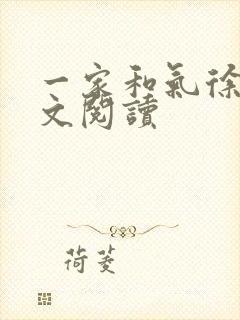 一家和氣徐
文閱讀
荷菱